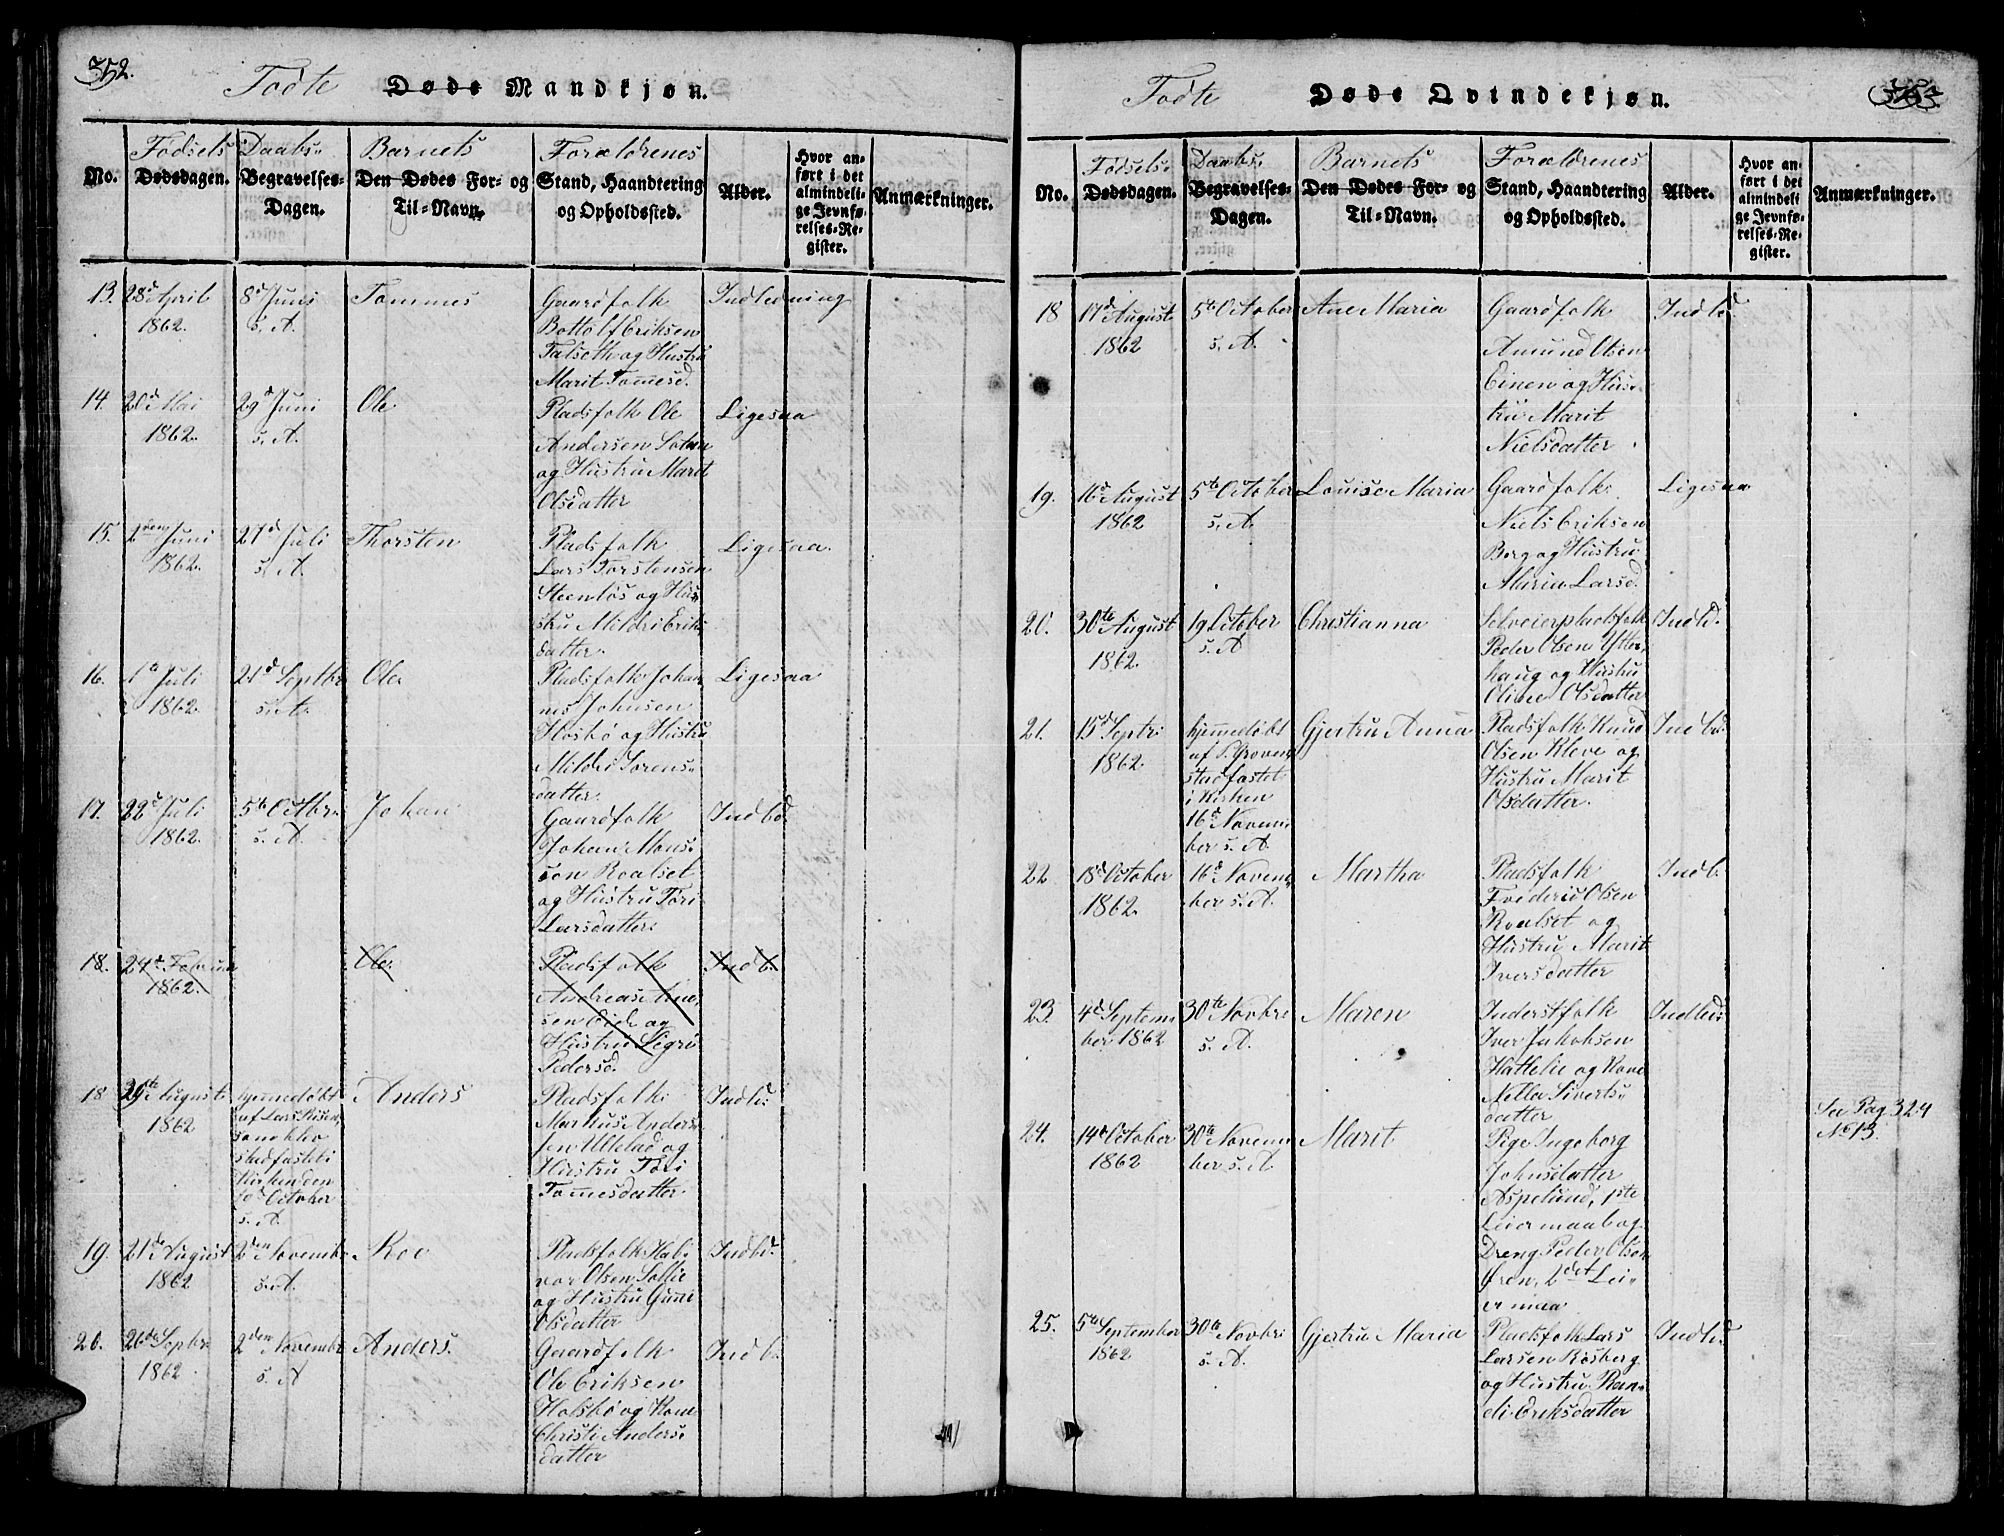 352.
Födte Døde Mandkjøn.
No.
Fødsels
Dødsdagen.
Daabs-
Begravelses-
Dagen.
Barnets
Den Dødes For- og
Til-Navn.
Forældrenes
Stand, Haandtering
og Opholdssted.
Alder.
Hvor an-
ført i det
almindeli-
ge Jevnfø-
relses-Re-
gister.
Anmærkninger.
13. 28d April
1862.
8d Juni
s. A.
Tommes
Gaardfolk
Bottolf Eriksen
Talseth og Hustru
Marit Tomesd.
Indledning
14. 20d Mai
1862.
29d Juni
s. A.
Ole
Pladsfolk Ole
Andersen
og Hustru Marit
Olsdatter
Ligesaa
15. 2den Juni
1862.
27d Juli
s. A.
Thorsten
Pladsfolk
Lars Torstensen
Steenløs og Hus-
tru Mildri Eriks
datter.
Ligesaa
16. 1d Juli
1862.
21d Septbr
s. A.
Ole
Pladsfolk Johan
nes Johnsen
Hosbø og Hustru
Mildri Sørens-
datter.
Ligesaa
17. 22d Juli
1862.
5te Octbr.
s. A.
Johan
Gaardfolk
Johan Mons-
søn Roalset
og Hustru Tori
Larsdatter.
Indbd.
18. 24d Februar
1862.
Ole.
Pladsfolk
Andreas
sen Eide og
Hustru Sigri
Pedersd.
Indb.
18 29de August
1862
hjemmedøbt
af Lars
stadfastet i
Kirken den
October
s. A.
Anders
Pladsfolk
Markus Anders-
sen Ullelad og
Hustru Tori
Tomesdatter
Indld.
19. 21de August
1862
2den Novembr
s. A.
Roo
Pladsfolk Hal-
vor Olsen Sollie
og Hustru Guni
Olsdatter
Indld.
20. 20de Sepbr.
1862
2den Novembr
s. A
Anders.
Gaardfolk
Ole Eriksen
Holsbø og Kone
Christi Anders-
datter
Indb.
Födte Døde Qvindekjøn.
353.
No.
Fødsels-
Dødsdagen.
Daabs-
Begravelses-
Dagen.
Barnets
Den Dødes For- og
Til-Navn.
Forældrenes
Stand, Haandtering
og Opholdssted.
Alder.
Hvor an-
ført i det
almindeli
ge Jevnfø-
relses-Re-
gister.
Anmærkninger.
18 17d August
1862
5te October
s. A.
Ane Maria
Gaardfolk
Amund Olsen
Einen og Hus-
tru Marit
Nielsdatter
Indld
19. 16d August
1862
5te October
s. A.
Louise Maria
Gaardfolk
Niels Eriksen
Berg og Hustru
Maria Larsd.
Ligesaa
20. 30te August
1862.
19 October
s. A
Christianna
Selveierpladsfolk
Peder Olsen Ytter-
haug og Hustru
Oline Olsdatter
Indld.
21. 15d Septr.
1862
hjemmedøbt
af
stadfæstet
i Kirken
16d Novem-
ber s. A.
Gjertru Anna
Pladsfolk Knud
Olsen Kleve og
Hustru Marit
Olsdatter.
Indbd.
22 18d October
1862.
16d Novem-
ber s. A.
Martha
Pladsfolk
Frederic Olsen
Roalset og
Hustru Marit
Iversdatter
Indb.
23. 4d Septem-
ber 1862
30te Novbr.
s. A.
Maren
Inderstfolk
Iver Jakobsen
Hattelie og Kone
Nella Siverts-
datter
Indld.
24. 14d October
1862
30te Novem-
ber s. A.
Marit
Pige Ingeborg
Johnsdatter
Aspelund, 1ste
Leiermaal og
Dreng Peder Olsen
Øren, 2det Lei-
ermaa
See Pag 324
No 13.
25. 5te September
1862
30te Novbr.
s. A.
Gjertru Maria
Pladsfolk Lars
Larsen Rösberg
og Hustru Ran-
di Eriksdatter
Indld.